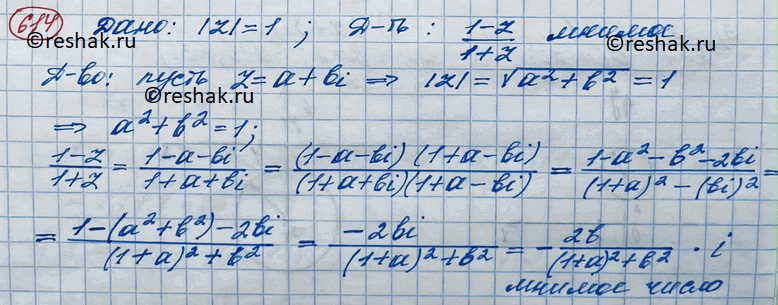 614 Дано: |z|=1 ; Д-ть : (1-z)/(1+z) мнимое
©reshak.ru ©reshak.ru
Д-во: пусть z=a+bi ⇒ |z|=√(a²+b²)=1
©reshak.ru
⇒ a²+b²=1;
(1-z)/(1+z) = (1-a-bi)/(1+a+bi) = ((1-a-bi)(1+a-bi))/((1+a+bi)(1+a-bi)) = (1-a²-b²-2bi)/((1+a)²-(bi)²) =
= (1-(a²+b²)-2bi)/((1+a)²+b²) = (-2bi)/((1+a)²+b²) = -(2b)/((1+a)²+b²) · i
мнимое число